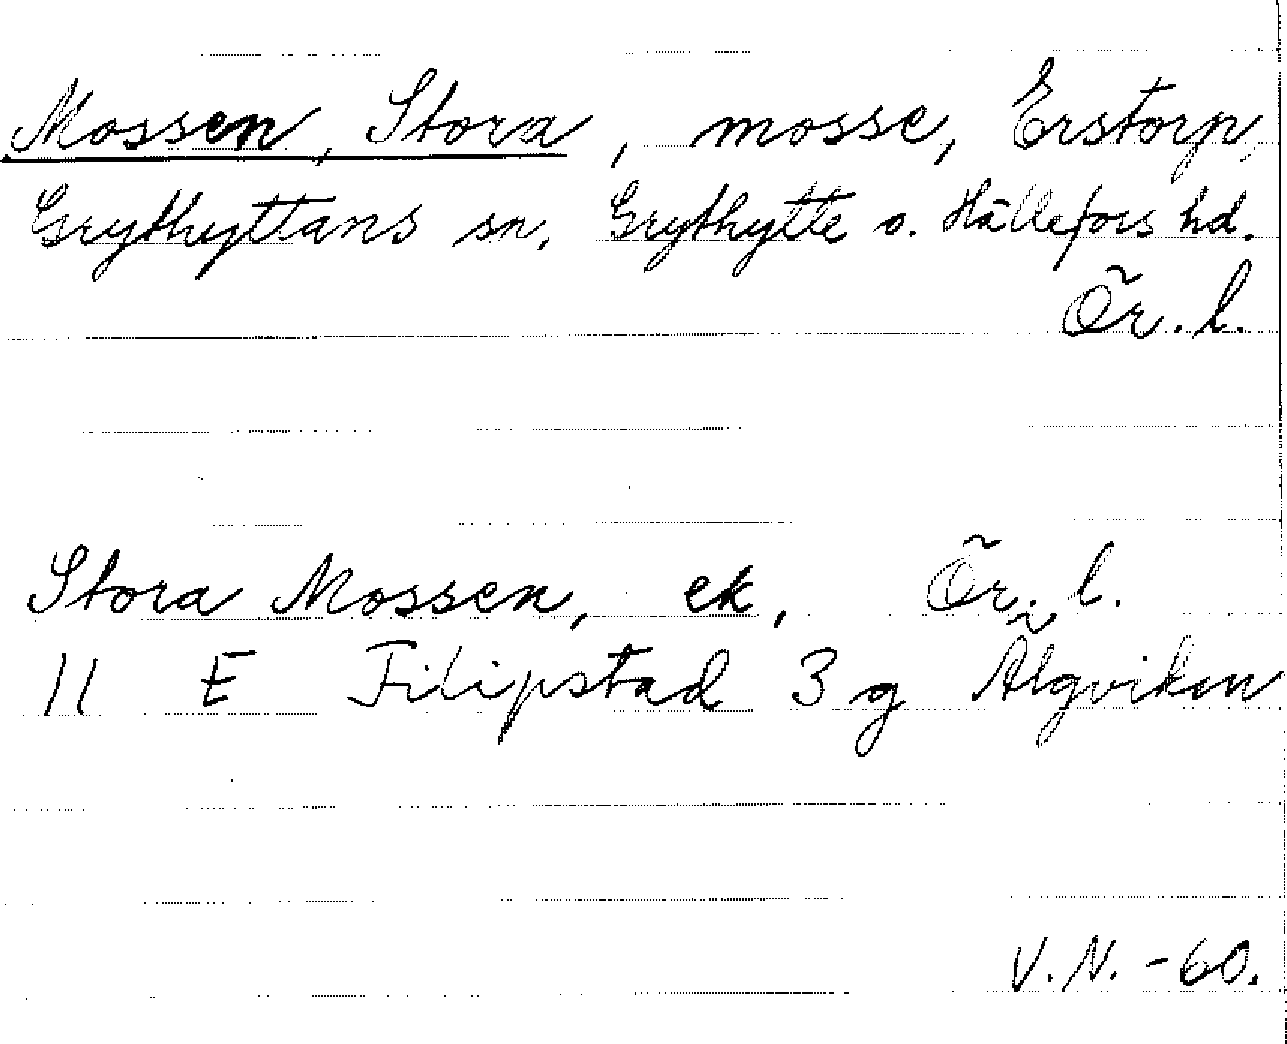 Mossen, Stora, mosse, Erstorp,
Grythyttans sn, Grythytte o. Hällefors hd.
Ör. l.
Stora Mossen, ek, Ör. l.
11 E Filipstad 3 g Älgviken
V.N. -60.